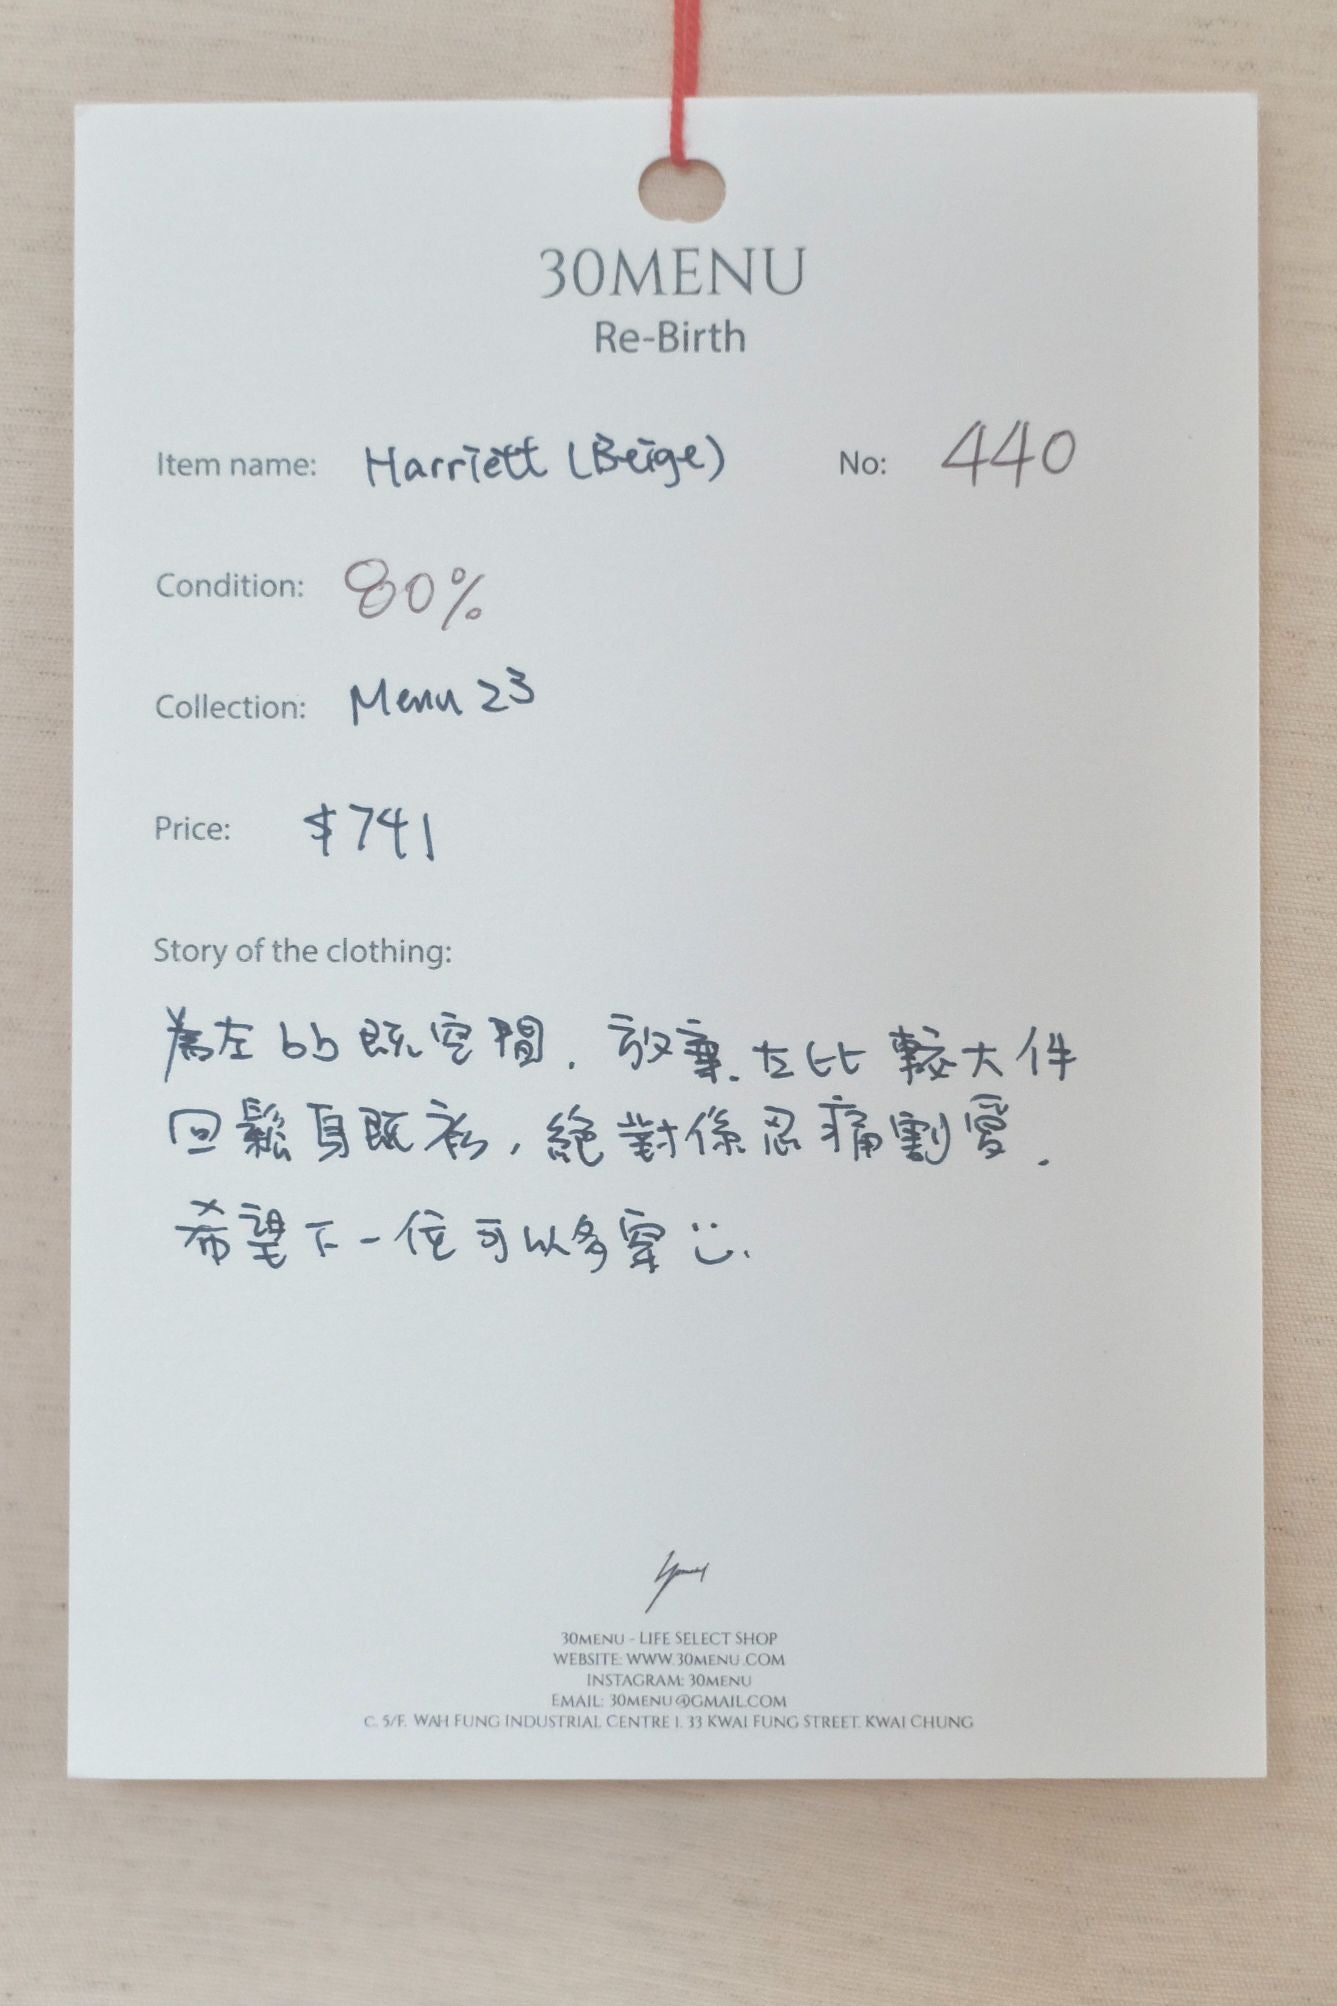 30MENU
Re-Birth
Item name: Harriett (Beige) No: 440
Condition: 80%
Collection: Menu 23
Price: $741
Story of the clothing:
為左bb既空間. 放棄左比較大件
回鬆身既衫, 絕對係忍痛割愛.
希望下一位可以多穿 :).
30MENU - LIFE SELECT SHOP
WEBSITE: WWW.30MENU.COM
INSTAGRAM: 30MENU
EMAIL: 30MENU@GMAIL.COM
C, 5/F, WAH FUNG INDUSTRIAL CENTRE I, 33 KWAI FUNG STREET, KWAI CHUNG